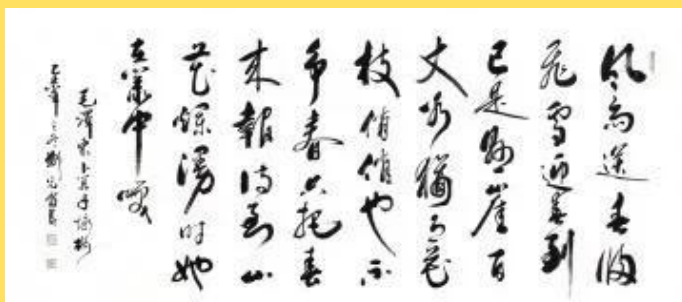 风雨送春归
飛雪迎春到
已是悬崖百
丈冰猶有花
枝俏俏也不
争春只把春
来報待到山
花爛漫时她
在叢中笑
毛澤東卜算子咏梅
劉